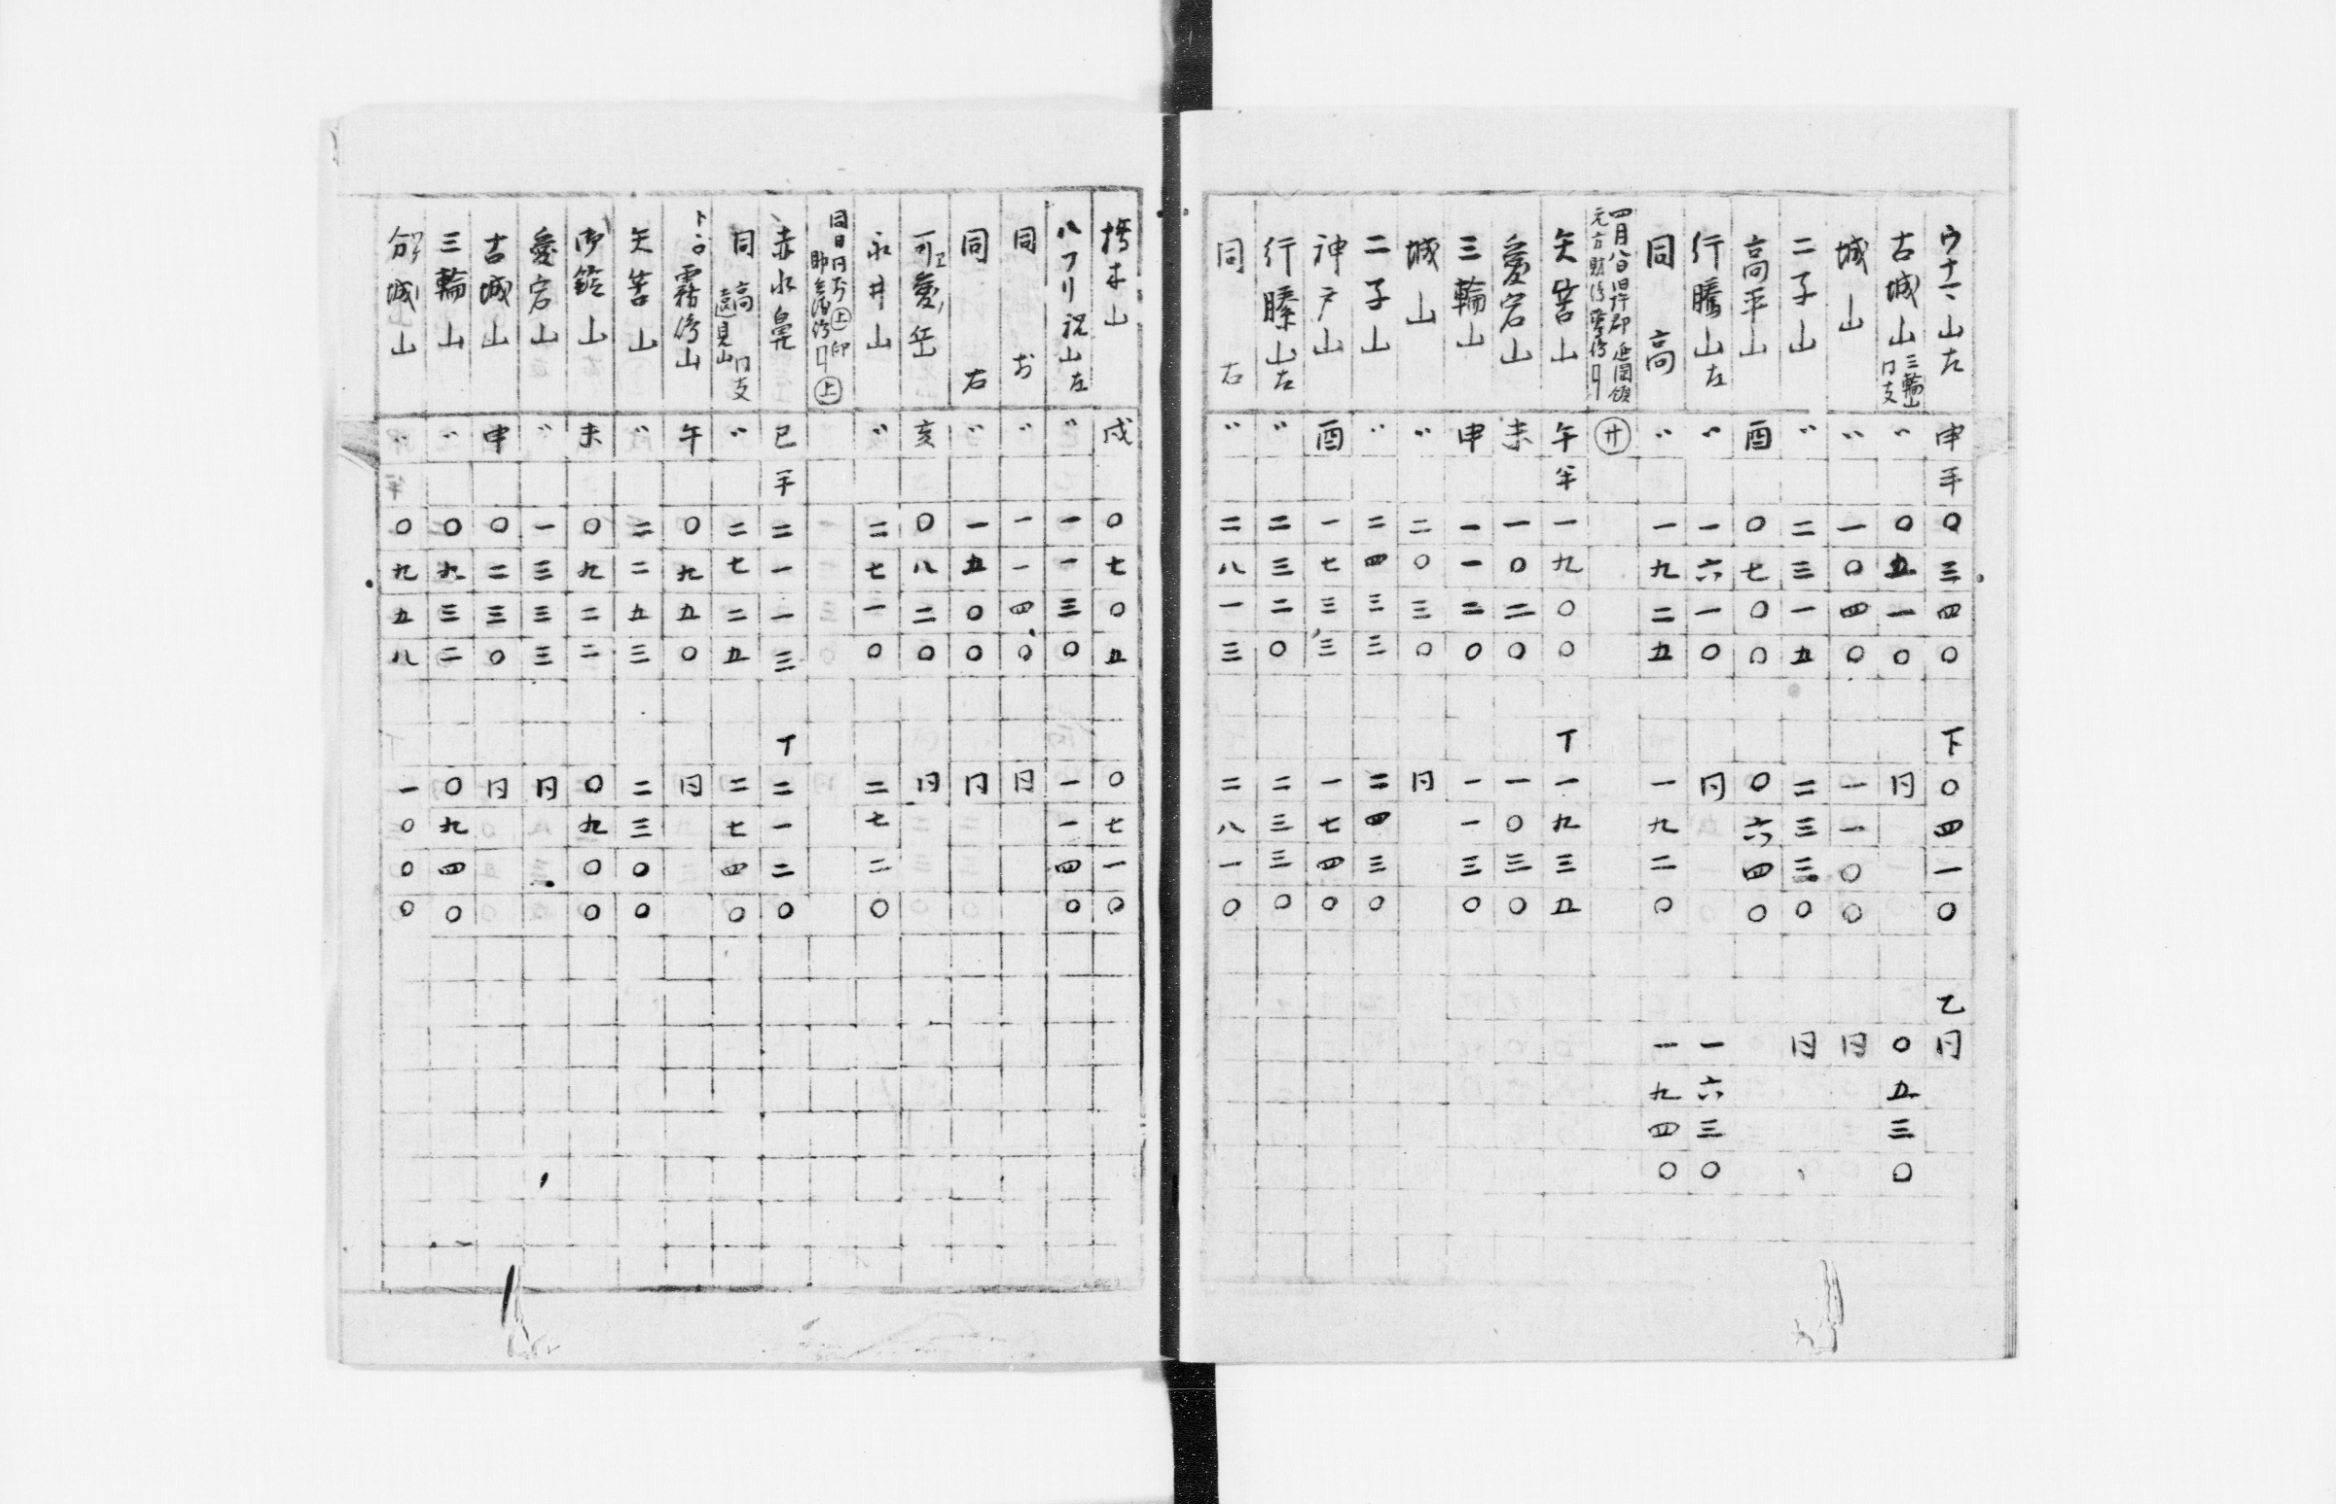 ウナマ山左 申 半 〇三四〇 下 〇四一〇 乙 同
古城山 三輪山 口支 〃 〇五一〇 同 〇五三〇
城山 〃 一〇四〇 一一〇〇 同
二子山 〃 二三一五 二三三〇 同
高平山 酉 〇七〇〇 〇六四〇
行騰山左 〃 一六一〇 同 一六三〇
同 高 〃 一九二五 一九二〇 一九四〇
四月八日 臼杵郡 延岡領
元方財
㊉
矢筈山 午 半 一九〇〇 丁 一九三五
愛宕山 未 一〇二〇 一〇三〇
三輪山 申 一一二〇 一一三〇
城山 〃 二〇三〇 同
二子山 〃 二四三三 二四三〇
神戸山 酉 一七三三 一七四〇
行騰山左 〃 二三二〇 二三三〇
同 右 〃 二八一三 二八一〇
戌 〇七〇五 〇七一〇
ハフリ祝山左 〃 一一三〇 一一四〇
同 〃 一一四〇 同
同 右 〃 一五〇〇 同
可愛岳 亥 〇八二〇 同
永井山 〃 二七一〇 二七二〇
同日同 ㊤ 印
㊤
赤水鼻 巳 半 二一一三 丁 二一二〇
同 高 遠見山 口支 〃 二七二五 二七四〇
山 午 〇九五〇 同
矢筈山 〃 二二五三 二三〇〇
山 未 〇九二二 〇九〇〇
愛宕山 〃 一三三三 同
古城山 申 〇二三〇 同
三輪山 〃 〇九三二 〇九四〇
城山 〃 〇九五八 一〇〇〇